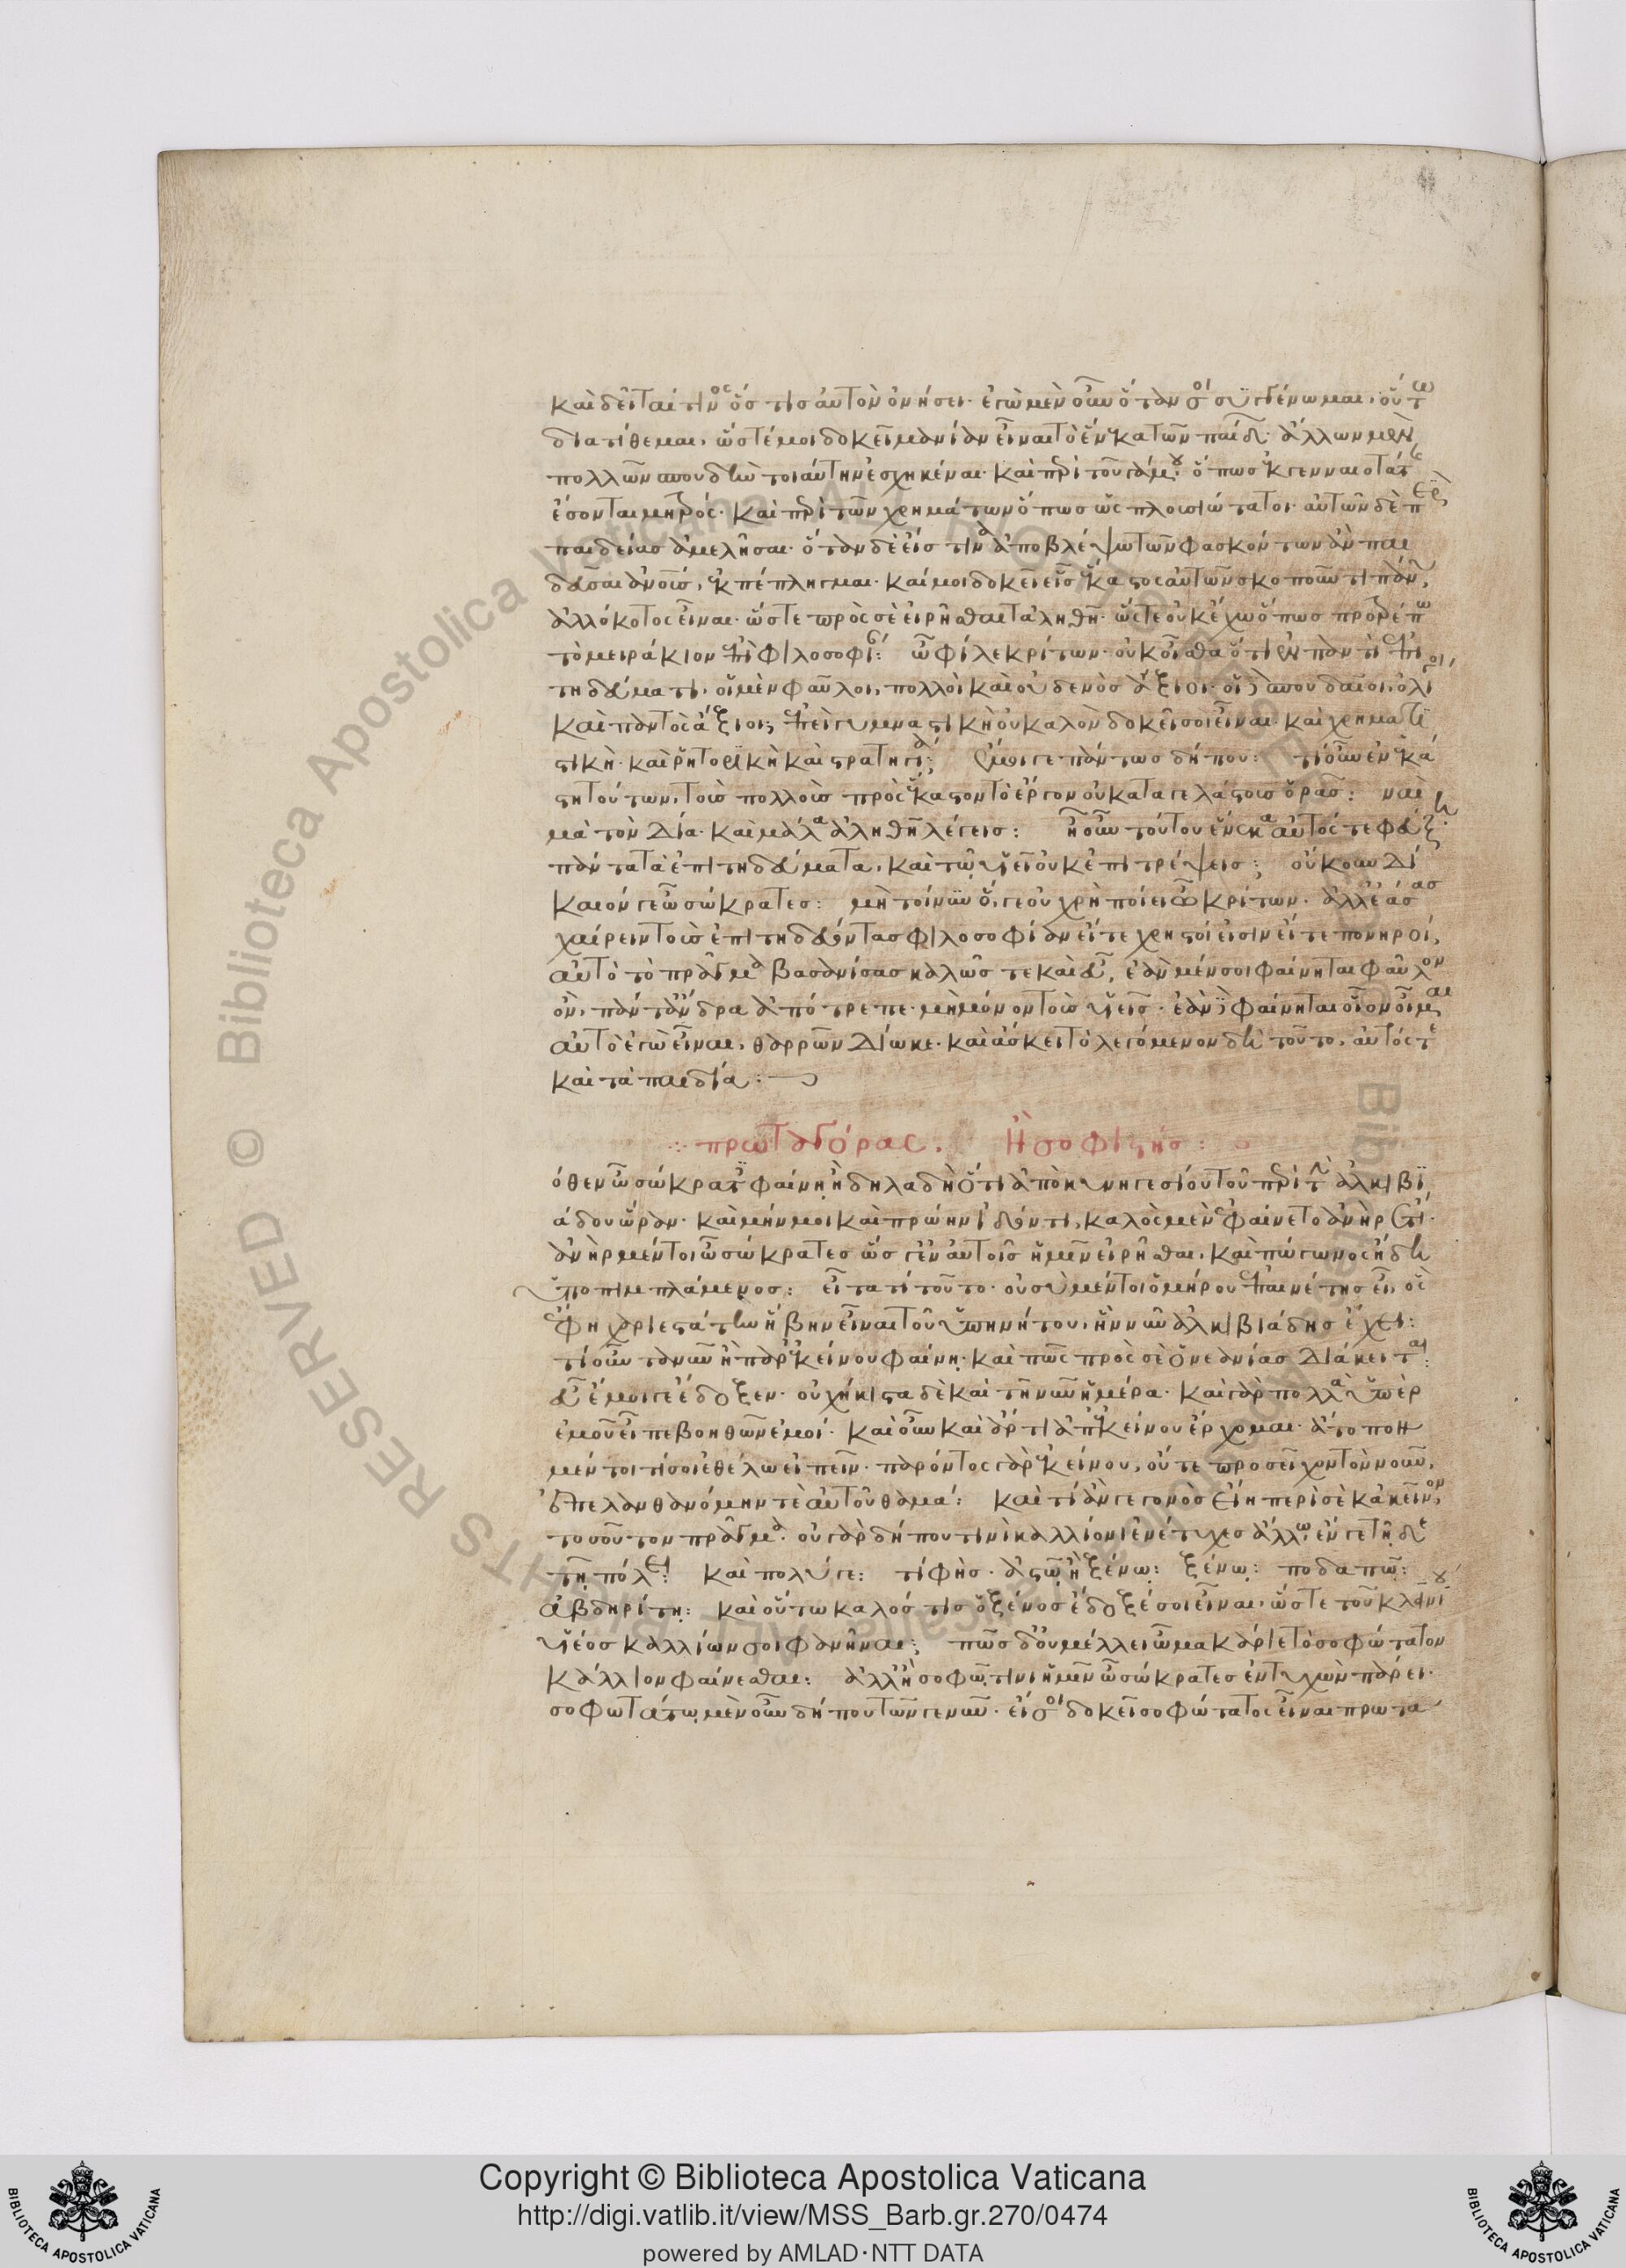 καὶ δεῖταί τινος ὅστις αὐτὸν ὀνήσει· ἐγὼ μὲν οὖν ὅταν σοι συγγένωμαι, οὕτω
διατίθεμαι, ὥστέ μοι δοκεῖ μανίαν εἶναι τὸ ἕνεκα τῶν παίδ· ἄλλων μὲν
πολλῶν σπουδὴν τοιαύτην ἐσχηκέναι· καὶ περὶ τοῦ γάμου ὅπως ἐκ γενναιοτάτης
ἔσονται μητρός· καὶ περὶ τῶν χρημάτων ὅπως ὡς πλουσιώτατοι· αὐτῶν δὲ περὶ
παιδείας ἀμελῆσαι· ὅταν δὲ εἴς τινα ἀποβλέψω τῶν φασκόντων ἂν παι
δεῦσαι ἀνους, ἐκπέπληγμαι· καί μοι δοκεῖ εἷς ἕκαστος αὐτῶν σκοποῦντι πάνυ,
ἀλλόκοτος εἶναι· ὥς γε πρὸς σὲ εἰρῆσθαι τἀληθῆ· ὥστε οὐκ ἔχω ὅπως προτρέπω
τὸ μειράκιον ἐπὶ φιλοσοφίαν: ὦ φίλε κρίτων· οὐκ οἶσθα ὅτι ἐν παντὶ ἐπι
τηδεύματι, οἱ μὲν φαῦλοι, πολλοὶ καὶ οὐδενὸς ἄξιοι· οἱ δὲ σπουδαῖοι, ὀλίγοι,
καὶ παντὸς ἄξιοι; ἐπεὶ γυμναστικὴ οὐ καλὸν δοκεῖ σοι εἶναι· καὶ χρηματι
στικὴ· καὶ ῥητορικὴ καὶ στρατηγία; ἔμοιγε πάντως δήπου: τί οὖν ἐν ἑκά
στῃ τούτων, τοὺς πολλοὺς πρὸς ἕκαστον τὸ ἔργον οὐ καταγελάστους ὁρᾷς: ναὶ
μὰ τὸν Δία· καὶ μάλα ἀληθῆ λέγεις: ἦ οὖν τούτου ἕνεκα αὐτός τε φεύξῃ
πάντα τὰ ἐπιτηδεύματα, καὶ τῷ υἱεῖ οὐκ ἐπιτρέψεις; οὔκουν δί
καιόν γε ὦ σώκρατες: μὴ τοίνυν ὅ γε οὐ χρὴ ποίει ὦ κρίτων· ἀλλ᾽ ἐάσας
χαίρειν τοὺς ἐπιτηδεύοντας φιλοσοφίαν εἴτε χρηστοί εἰσιν εἴτε πονηροί,
αὐτὸ τὸ πρᾶγμα βασανίσας καλῶς τε καὶ εὖ, ἐὰν μέν σοι φαίνηται φαῦλον
ὂν, πάντ᾽ ἄνδρα ἀπότρεπε· μὴ μόνον τοὺς υἱεῖς· ἐὰν δὲ φαίνηται οἷον οἶμαι
αὐτὸ ἐγὼ εἶναι, θαρρῶν δίωκε· καὶ ἄσκει τὸ λεγόμενον δὴ τοῦτο, αὐτός τε
καὶ τὰ παιδία:
πρωταγόρας. Ἢ σοφισταί:
όθεν ὦ σώκρατες φαίνῃ· ἢ δῆλα δὴ ὅτι ἀπὸ κυνηγεσίου τοῦ περὶ τὴν ἀλκιβι
άδου ὥραν· καὶ μήν μοι καὶ πρώην ἰδόντι, καλὸς μὲν ἐφαίνετο ἀνὴρ ἔτι·
ἀνὴρ μέντοι ὦ σώκρατες ὥς γ᾽ ἐν αὐτοῖς ἡμῖν εἰρῆσθαι, καὶ πώγωνος ἤδη
ὑποπιμπλάμενος: εἶτα τί τοῦτο· οὐ σὺ μέντοι ὁμήρου ἐπαινέτης εἶ, ὃς
ἔφη χαριεστάτην ἥβην εἶναι τοῦ ὑπηνήτου, ἣν νῦν ἀλκιβιάδης ἔχει:
τί οὖν τανῦν ἢ παρ᾽ ἐκείνου φαίνῃ· καὶ πῶς πρὸς σὲ ὁ νεανίας διάκειται:
εὖ ἔμοιγε ἔδοξεν· οὐχ ἥκιστα δὲ καὶ τῇ νῦν ἡμέρᾳ· καὶ γὰρ πολλὰ ὑπὲρ
ἐμοῦ εἶπε βοηθῶν ἐμοί· καὶ οὖν καὶ ἄρτι ἀπ᾽ ἐκείνου ἔρχομαι· ἄτοπον
μέντοι τί σοι ἐθέλω εἰπεῖν· παρόντος γὰρ ἐκείνου, οὔτε προσεῖχον τὸν νοῦν,
ἐπελανθανόμην τὲ αὐτοῦ θαμά: καὶ τί ἂν γεγονὸς εἴη περὶ σὲ κἀκεῖνον
τοσοῦτον πρᾶγμα· οὐ γὰρ δήπου τινὶ καλλίονι ἐνέτυχες ἄλλῳ, ἔν γε τῇδε
τῇ πόλει: καὶ πολύ γε: τί φῄς· ἀστῷ ἢ ξένῳ: ξένῳ: ποδαπῷ:
ἀβδηρίτῃ: καὶ οὕτω καλός τις ὁ ξένος ἔδοξέ σοι εἶναι, ὥστε τοῦ κλεινίου
υἱέος καλλίων σοι φανῆναι; πῶς δ᾽ οὐ μέλλει ὦ μακάριε τὸ σοφώτατον
κάλλιον φαίνεσθαι: ἀλλ᾽ ἦ σοφῷ τινι ἡμῖν ὦ σώκρατες ἐντυχὼν πάρει·
σοφωτάτῳ μὲν οὖν δήπου τῶν γε νῦν· εἴ σοι δοκεῖ σοφώτατος εἶναι πρωτα
Copyright © Biblioteca Apostolica Vaticana
http://digi.vatlib.it/view/MSS_Barb.gr.270/0474
powered by AMLAD·NTT DATA